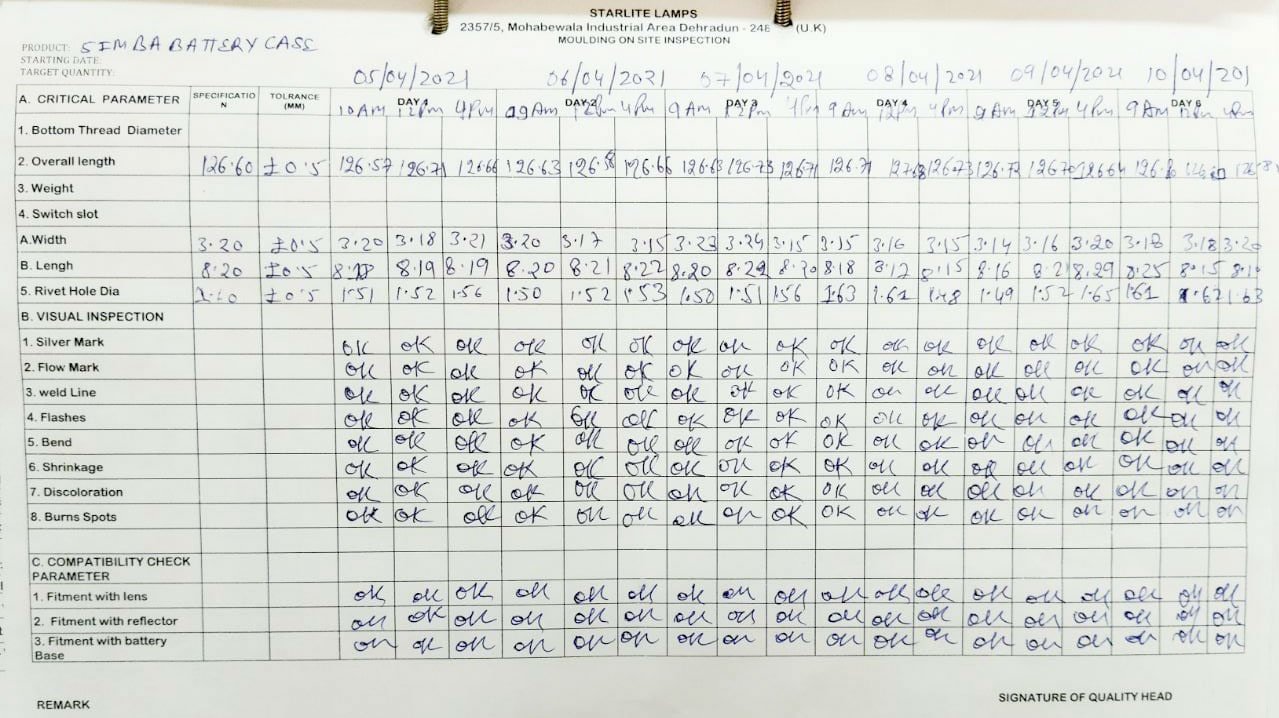 STARLITE LAMPS
2357/5, Mohabewala Industrial Area Dehradun - 248 (U.K)
MOULDING ON SITE INSPECTION
PRODUCT: SIMBA BATTERY CASE
STARTING DATE:
TARGET QUANTITY:
05/04/2021 06/04/2021 07/04/2021 08/04/2021 09/04/2021 10/04/201
A. CRITICAL PARAMETER SPECIFICATIO N TOLRANCE (MM) DAY 1 DAY 2 DAY 3 DAY 4 DAY 5 DAY 6
10 Am 12 Pm 4 Pm 09 Am 12 Pm 4 Pm 9 Am 12 Pm 4 Pm 9 Am 12 Pm 4 Pm 9 Am 12 Pm 4 Pm 9 Am 12 Pm 4 Pm
1. Bottom Thread Diameter
2. Overall length 126.60 ±0.5 126.57 126.71 126.66 126.63 126.58 126.66 126.63 126.73 126.71 126.71 126.73 126.72 126.70 126.64
3. Weight
4. Switch slot
A.Width 3.20 ±0.5 3.20 3.18 3.21 3.20 3.17 3.15 3.23 3.24 3.15 3.15 3.16 3.15 3.14 3.16 3.20 3.18 3.18 3.20
B. Lengh 8.20 ±0.5 8.19 8.19 8.20 8.21 8.22 8.20 8.18 8.15 8.16 8.21 8.29 8.25 8.15
5. Rivet Hole Dia ±0.5 1.51 1.52 1.56 1.50 1.52 1.53 1.50 1.51 1.56 1.63 1.61 1.48 1.49 1.52 1.65 1.61 1.62 1.63
B. VISUAL INSPECTION
1. Silver Mark OK OK OK OK OK OK OK OK OK OK OK OK OK OK OK OK OK OK
2. Flow Mark OK OK OK OK OK OK OK OK OK OK OK OK OK OK OK OK OK OK
3. weld Line OK OK OK OK OK OK OK OK OK OK OK OK OK OK OK OK OK OK
4. Flashes OK OK OK OK OK OK OK OK OK OK OK OK OK OK OK OK OK OK
5. Bend OK OK OK OK OK OK OK OK OK OK OK OK OK OK OK OK OK OK
6. Shrinkage OK OK OK OK OK OK OK OK OK OK OK OK OK OK OK OK OK OK
7. Discoloration OK OK OK OK OK OK OK OK OK OK OK OK OK OK OK OK OK OK
8. Burns Spots OK OK OK OK OK OK OK OK OK OK OK OK OK OK OK OK OK OK
C. COMPATIBILITY CHECK
PARAMETER
1. Fitment with lens OK OK OK OK OK OK OK OK OK OK OK OK OK OK OK OK OK OK
2. Fitment with reflector OK OK OK OK OK OK OK OK OK OK OK OK OK OK OK OK OK OK
3. Fitment with battery OK OK OK OK OK OK OK OK OK OK OK OK OK OK OK OK OK OK
Base
REMARK SIGNATURE OF QUALITY HEAD